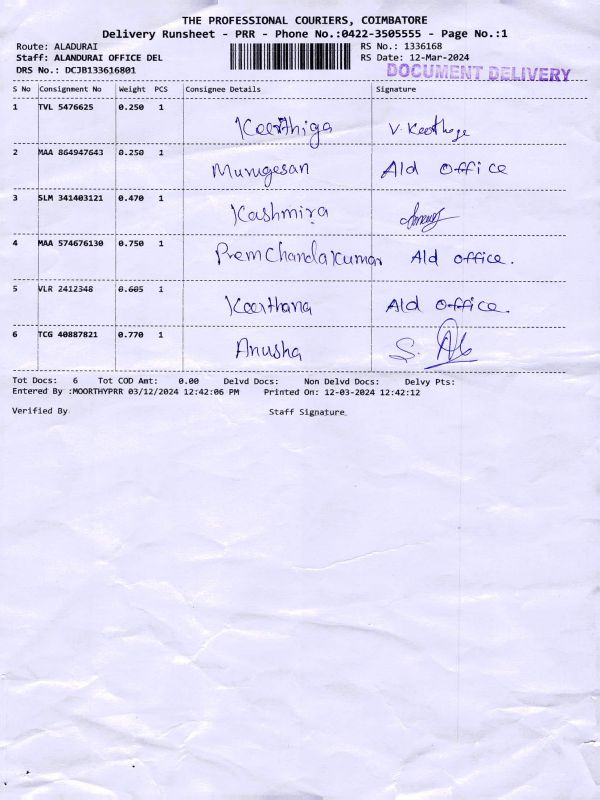 THE PROFESSIONAL COURIERS, COIMBATORE
Delivery Runsheet - PRR - Phone No.:0422-3505555 - Page No.:1
Route: ALADURAI RS No.: 1336168
Staff: ALANDURAI OFFICE DEL RS Date: 12-Mar-2024
DRS No.: DCJB133616801 DOCUMENT DELIVERY
S No Consignment No Weight PCS Consignee Details Signature
1 TVL 5476625 0.250 1
Keerthiga V. Keerthige
2 MAA 864947643 0.250 1
Murugesan Ald office
3 SLM 341403121 0.470 1
Kashmira
4 MAA 574676130 0.750 1
PremChandakumar Ald office.
5 VLR 2412348 0.605 1
Keerthana Ald office.
6 TCG 40887821 0.770 1
Anusha S.
Tot Docs: 6 Tot COD Amt: 0.00 Delvd Docs: Non Delvd Docs: Delvy Pts:
Entered By :MOORTHYPRR 03/12/2024 12:42:06 PM Printed On: 12-03-2024 12:42:12
Verified By Staff Signature